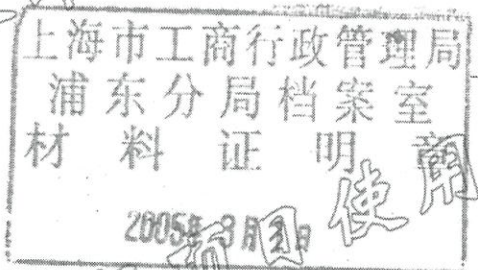 上海市工商行政管理局
浦东分局档案室
材料证明章
2005年 月 日
使用